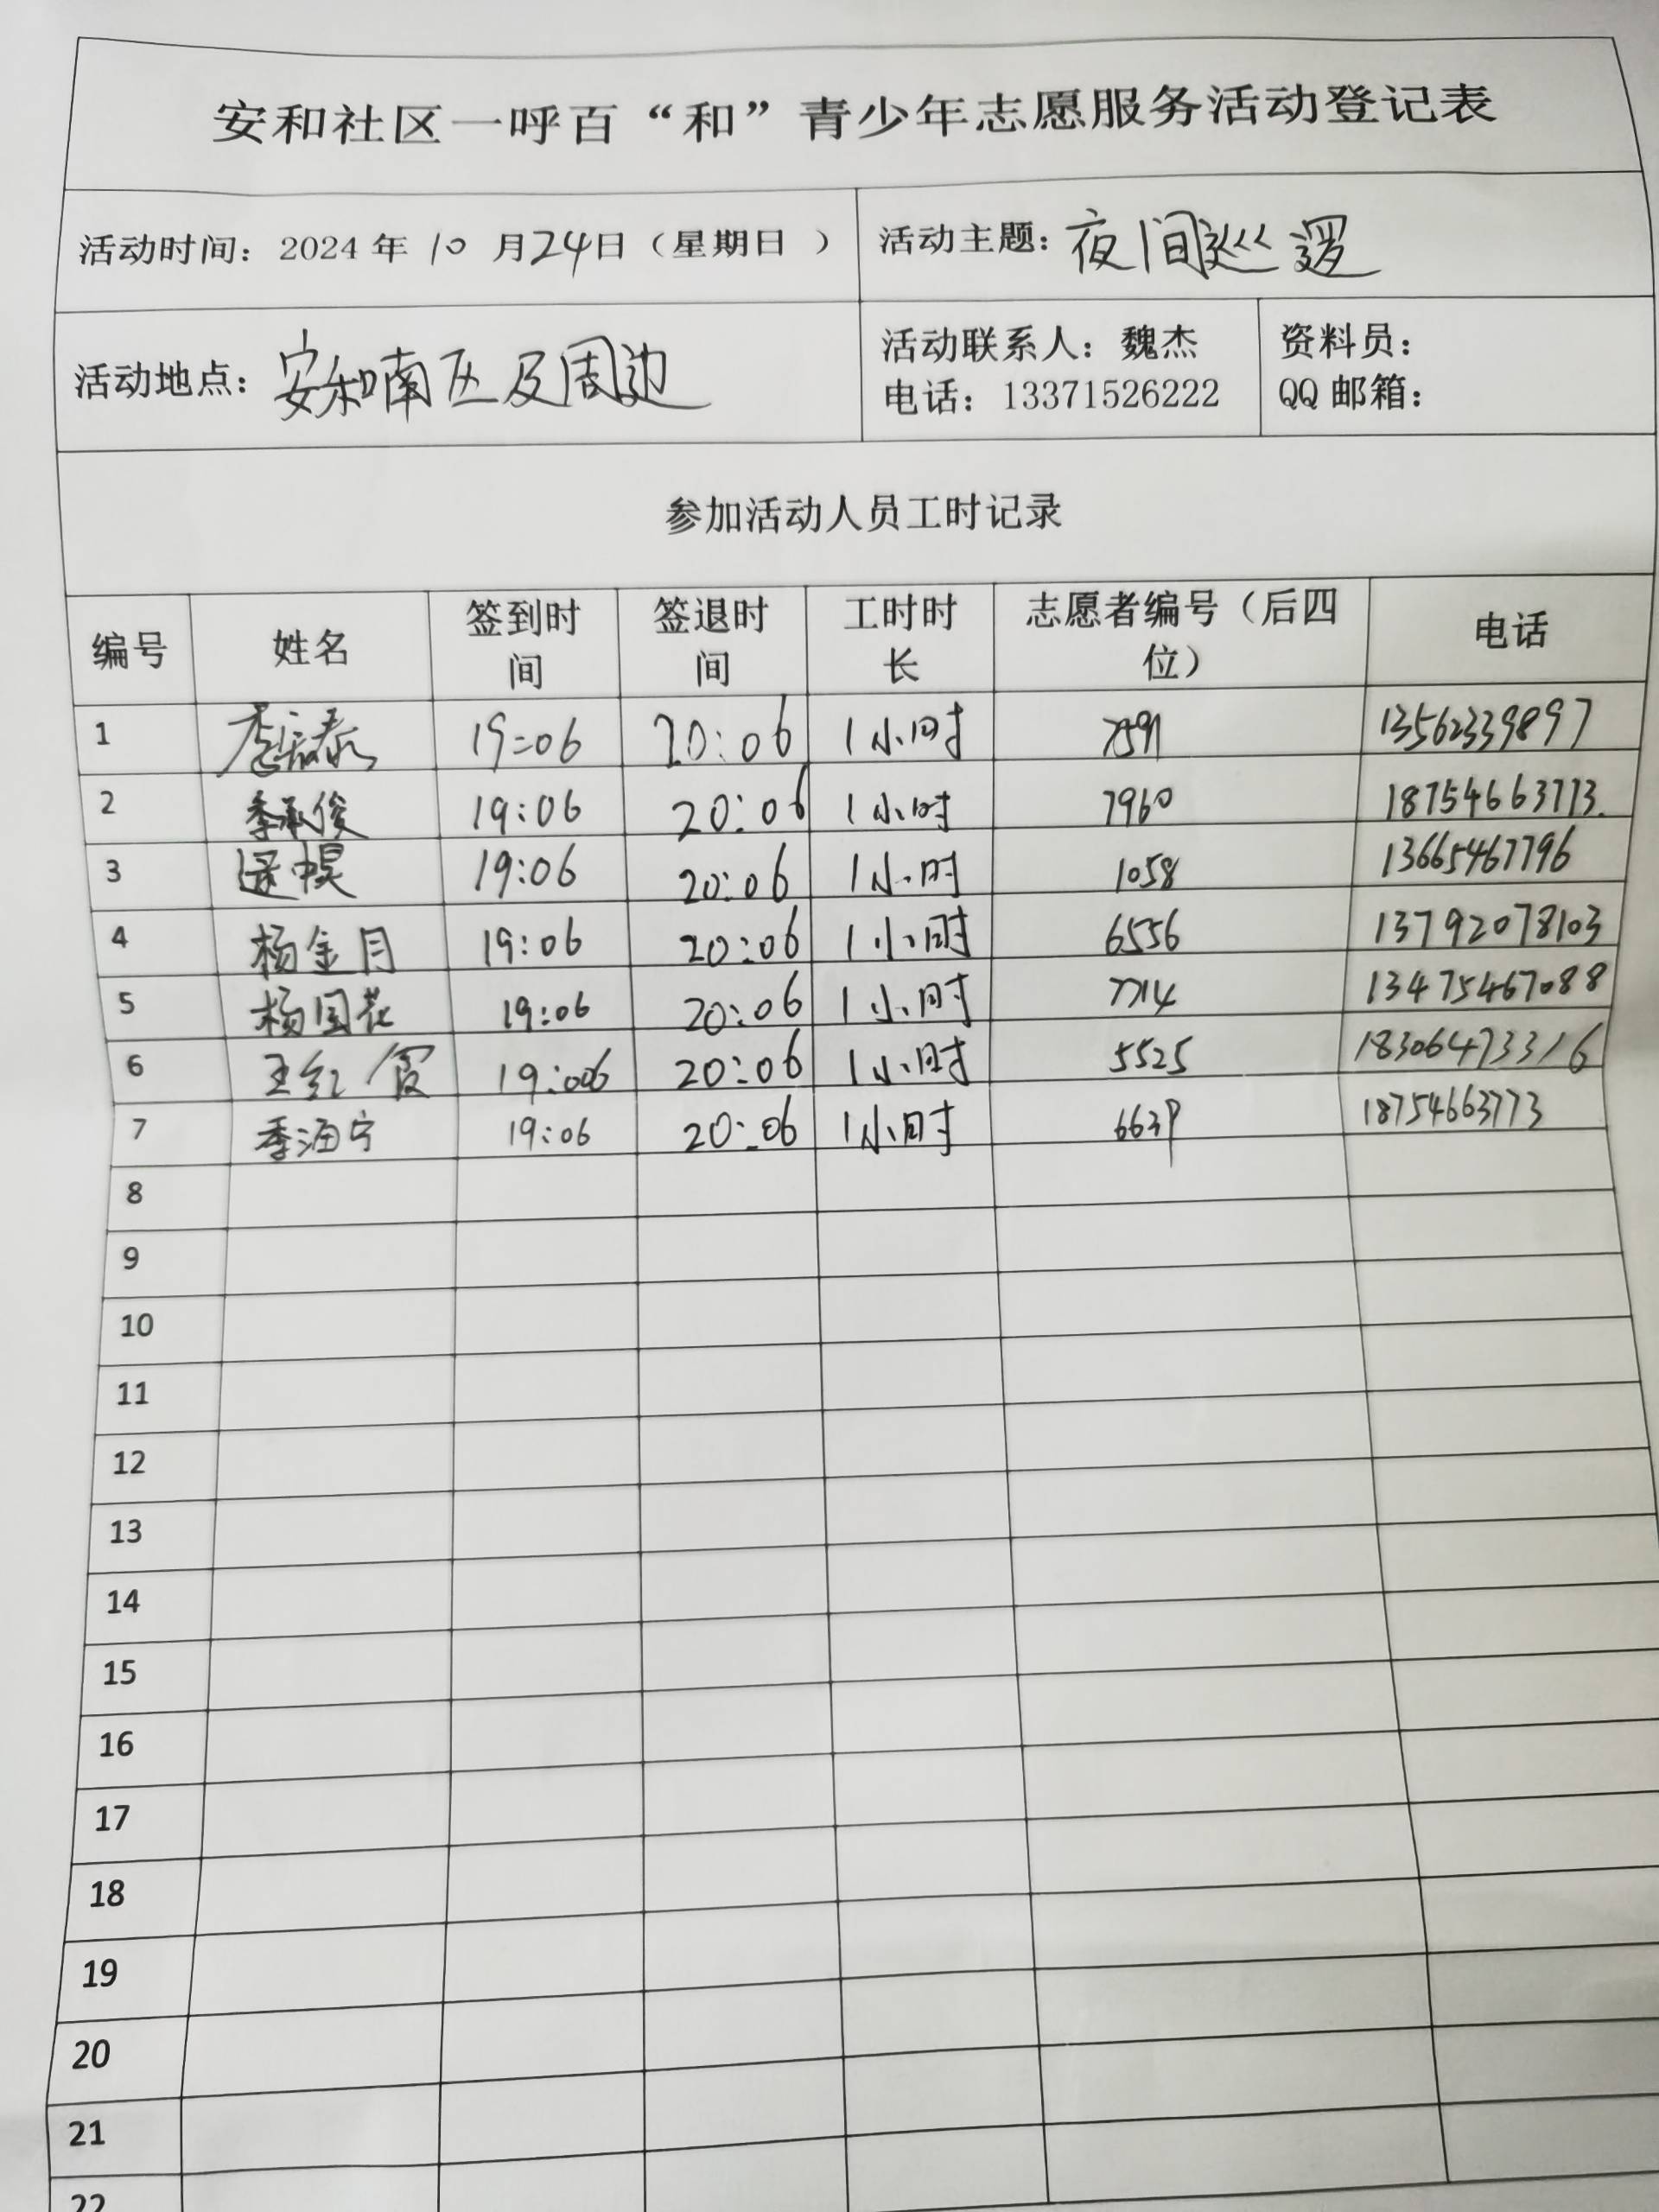 安和社区一呼百“和”青少年志愿服务活动登记表
活动时间：2024年10月24日（星期日 ） 活动主题：夜间巡逻
活动地点：安和南区及周边 活动联系人：魏杰 资料员：
电话：13371526222 QQ邮箱：
参加活动人员工时记录
编号 姓名 签到时间 签退时间 工时时长 志愿者编号（后四位） 电话
1 19:06 20:06 1小时 7591 13562339897
2 季承俊 19:06 20:06 1小时 7960 18754663773.
3 19:06 20:06 1小时 1058 13665467796
4 杨金月 19:06 20:06 1小时 6556 13792078103
5 杨国花 19:06 20:06 1小时 7714 13475467088
6 王红霞 19:006 20:06 1小时 5525 18306473316
7 季海宁 19:06 20:06 1小时 6639 18754663773
8
9
10
11
12
13
14
15
16
17
18
19
20
21
22